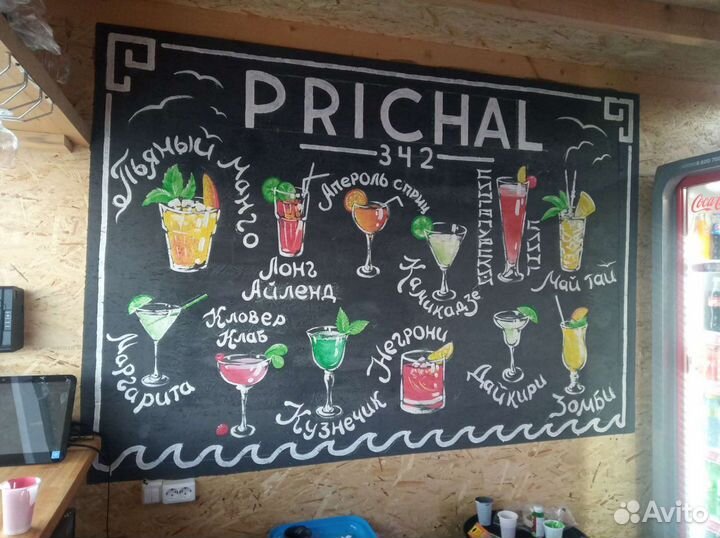 PRICHAL
342
Пьяный манго
Лонг
Айленд
Апероль сприц
Камикадзе
Май тай
Маргарита
Кловер
Клаб
Кузнечик
Негрони
Дайкири
Зомби
Coca-Cola
Avito